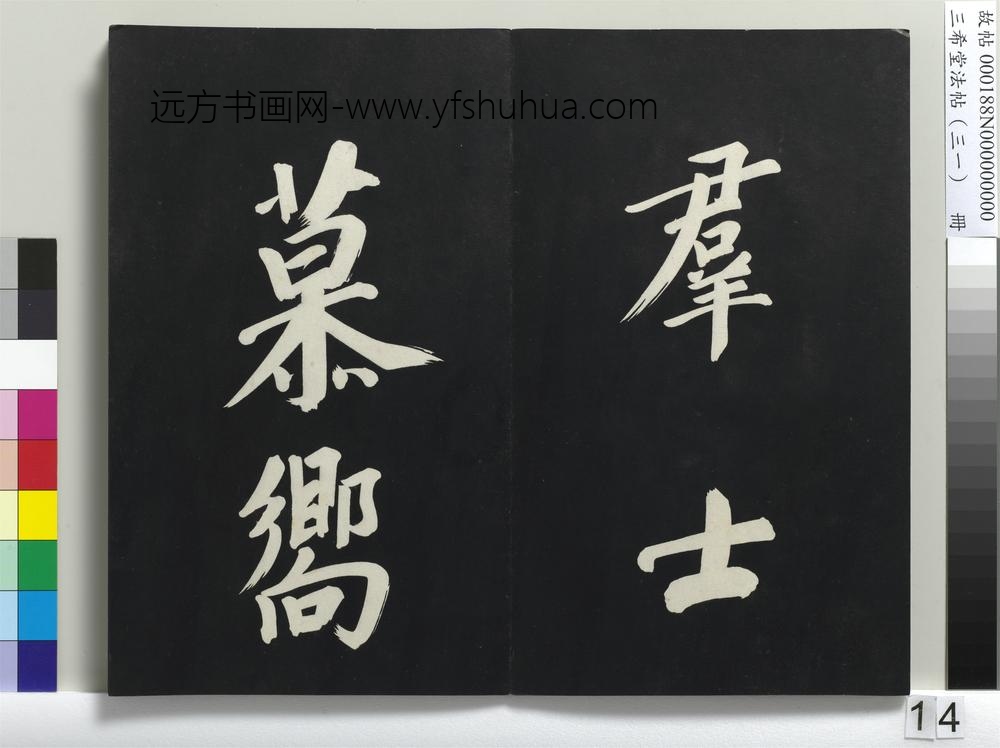 远方书画网-www.yfshuhua.com
羣士
慕嚮
故帖 000188N000000000
三希堂法帖（三一） 冊
14